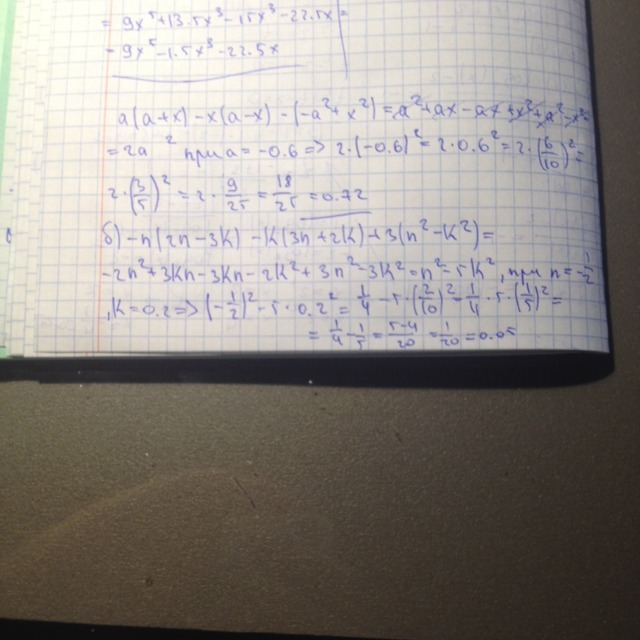 = 9x⁵ + 13.5x³ - 15x³ - 22.5x =
= 9x⁵ - 1.5x³ - 22.5x
a(a+x) - x(a-x) - (-a² + x²) = a² + ax - ax + x² + a² - x² =
= 2a² при a = -0.6 => 2·(-0.6)² = 2·0.6² = 2·(6/10)² =
2·(3/5)² = 2·9/25 = 18/25 = 0.72
б) -n(2n-3k) - k(3n+2k) + 3(n²-k²) =
-2n² + 3kn - 3kn - 2k² + 3n² - 3k² = n² - 5k², при n = -1/2
, k = 0.2 => (-1/2)² - 5·0.2² = 1/4 - 5·(2/10)² = 1/4 - 5·(1/5)² =
= 1/4 - 1/5 = (5-4)/20 = 1/20 = 0.05